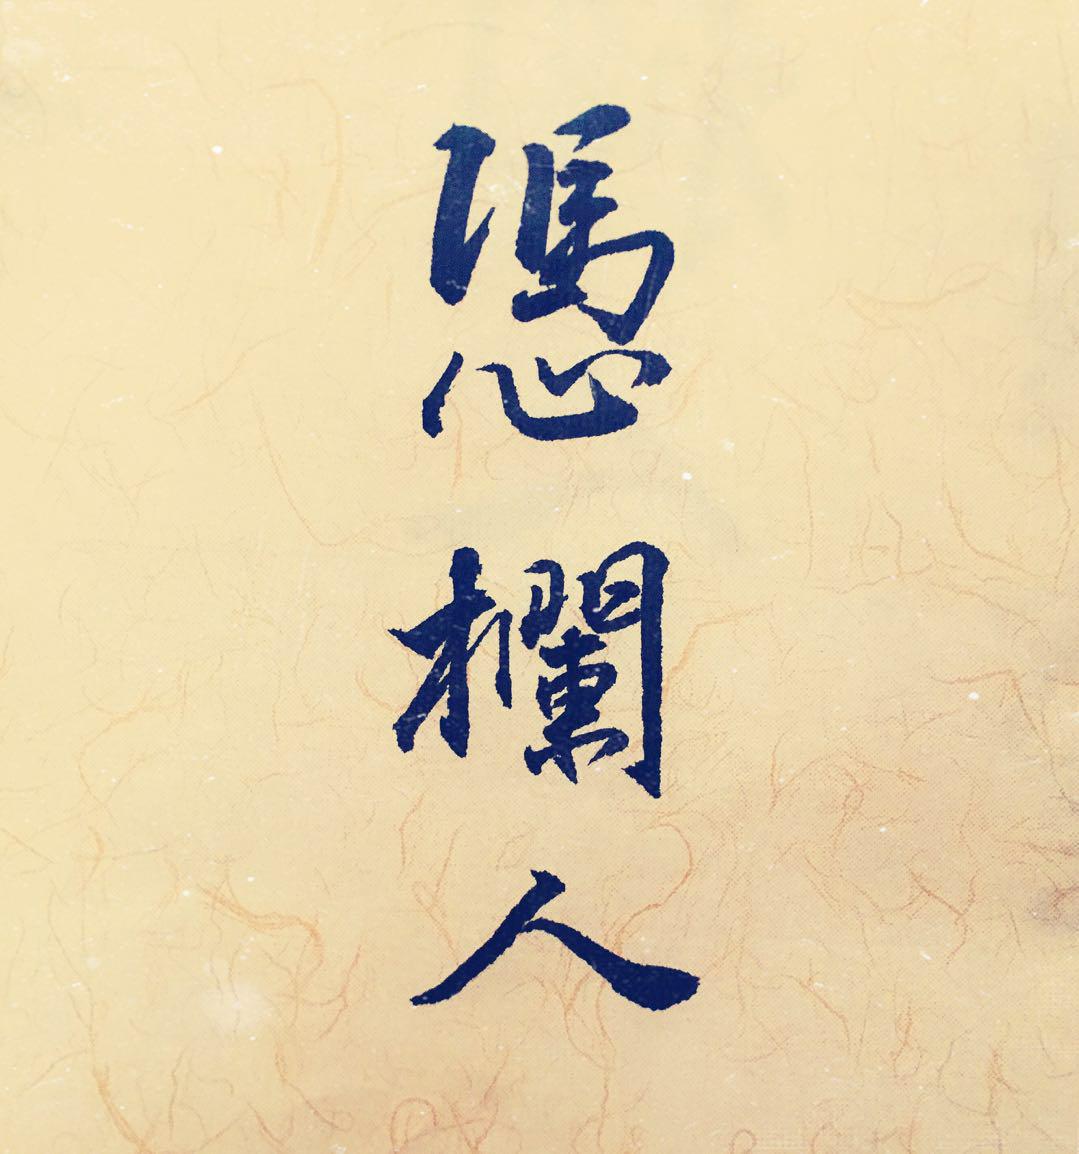 憑欄人